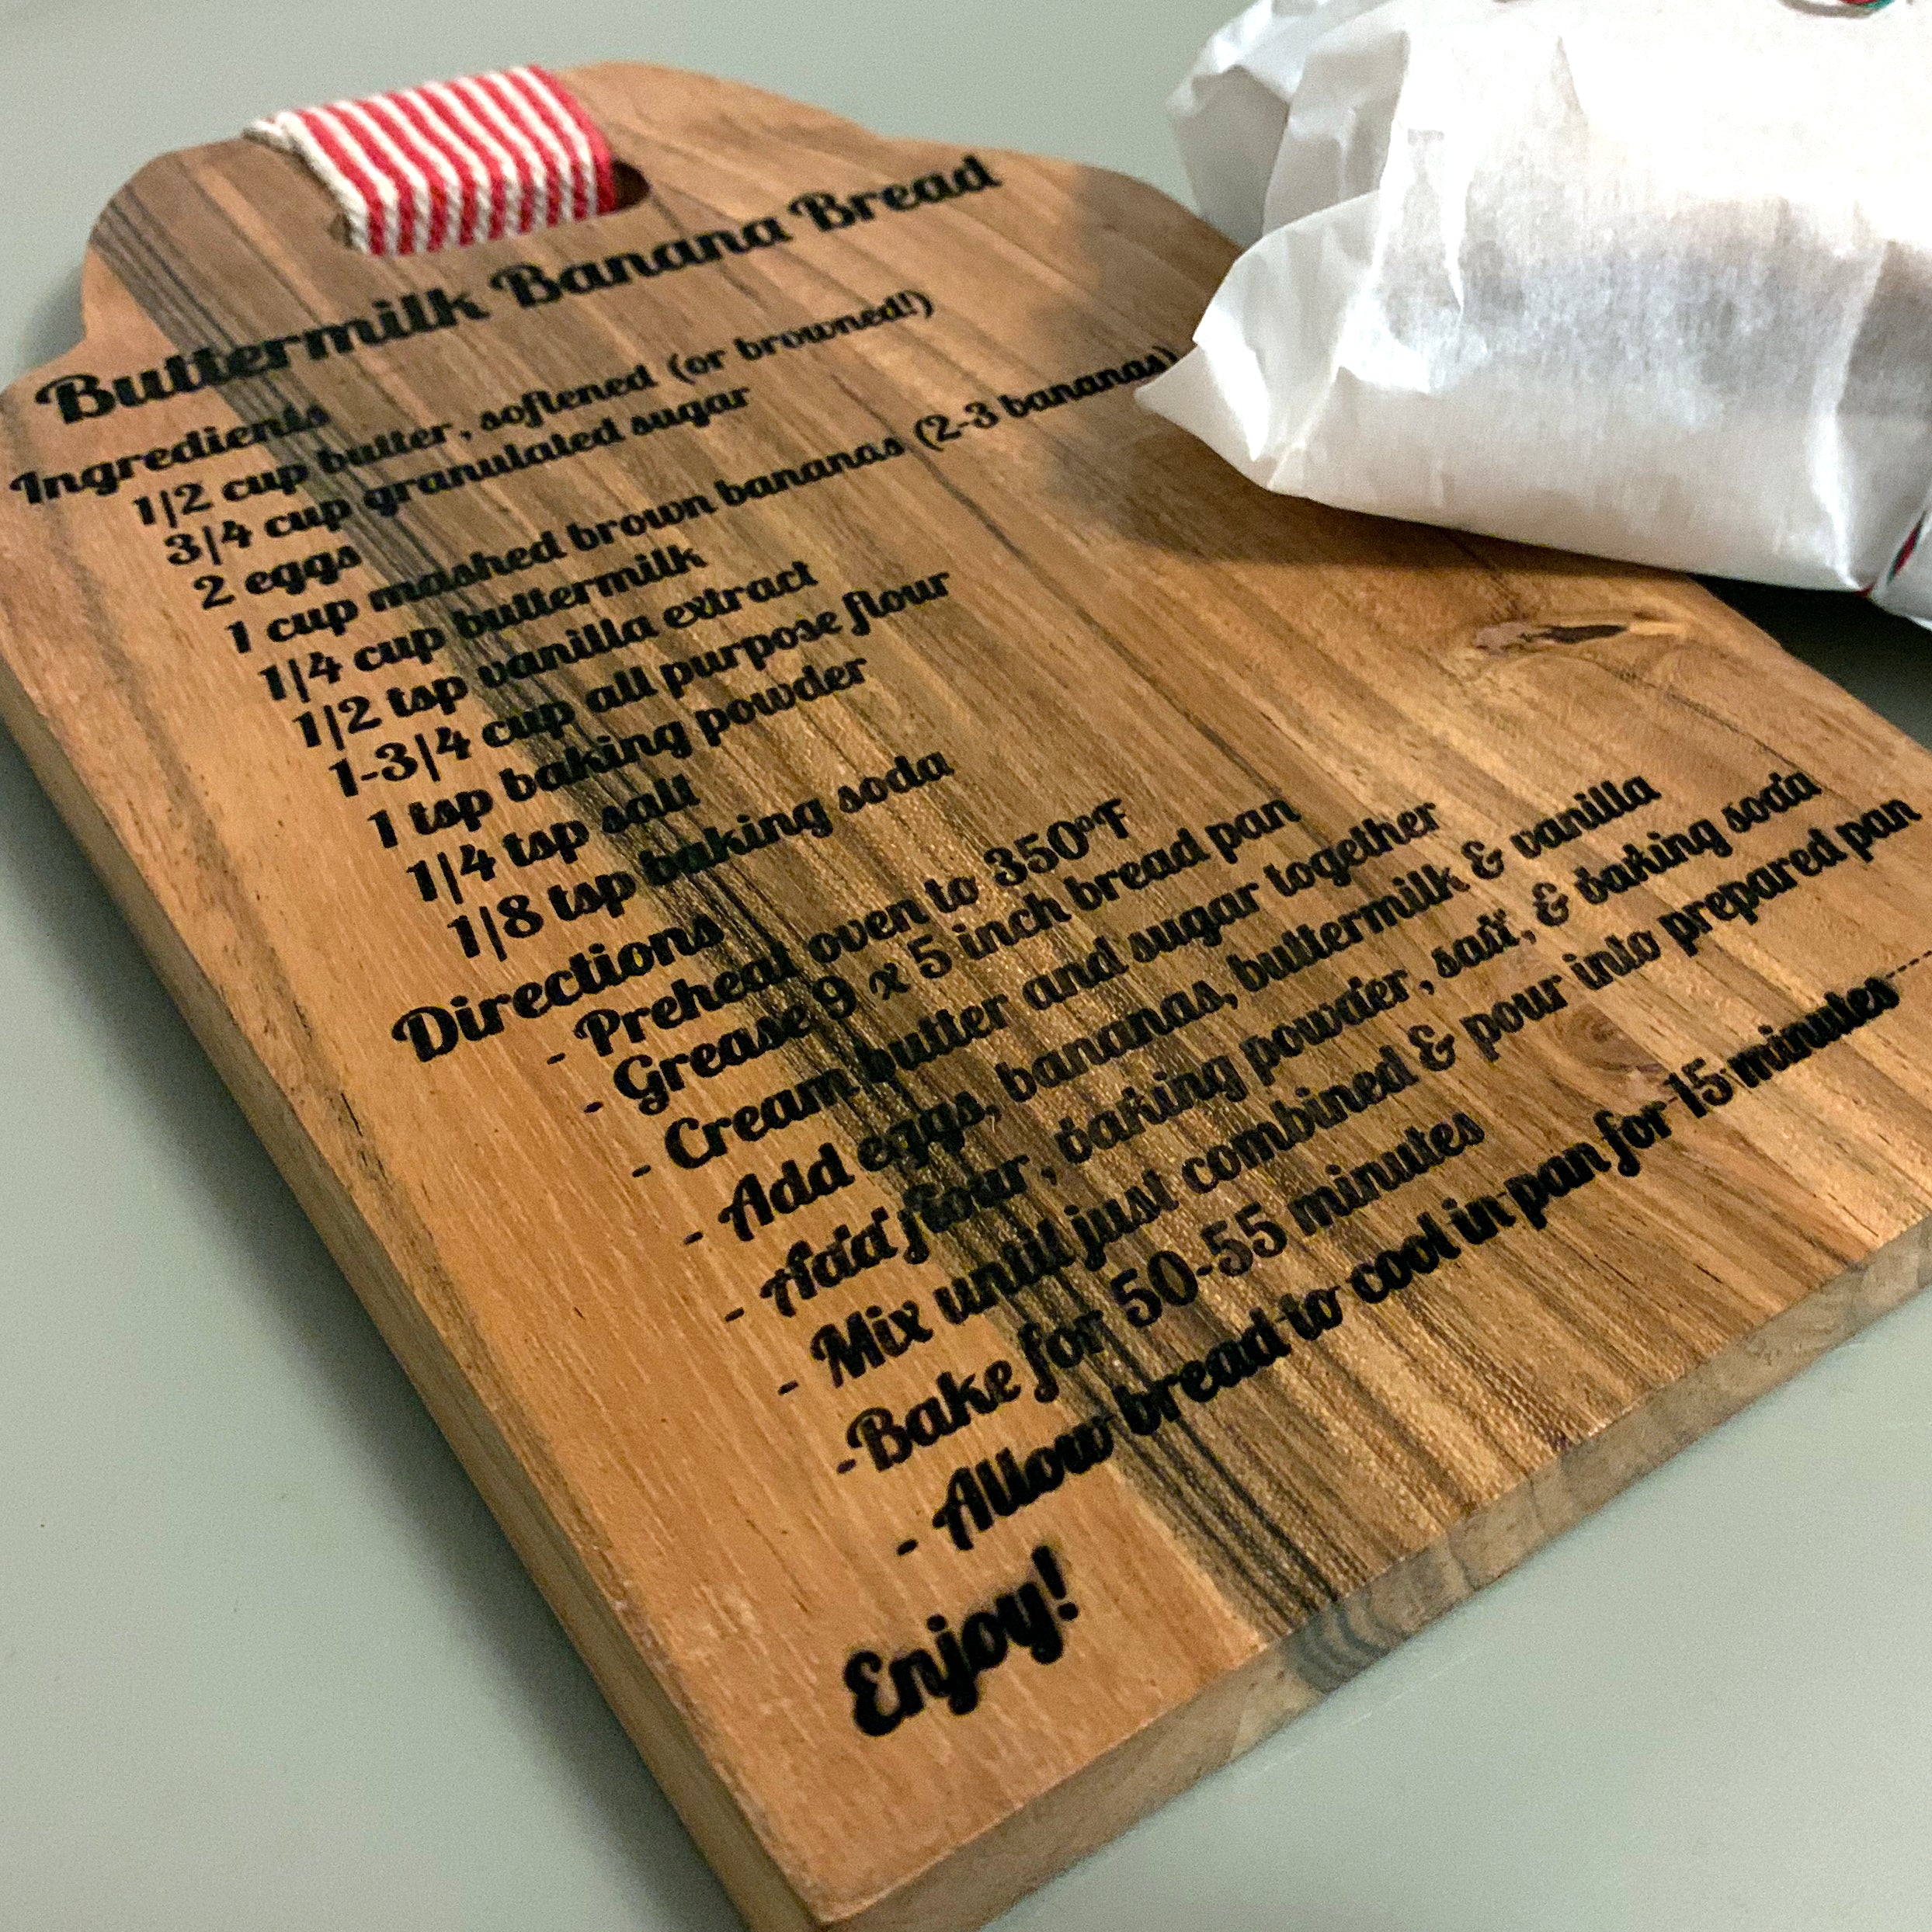 Buttermilk Banana Bread
Ingredients
1/2 cup butter, softened (or browned!)
3/4 cup granulated sugar
2 eggs
1 cup mashed brown bananas (2-3 bananas)
1/4 cup buttermilk
1/2 tsp vanilla extract
1-3/4 cup all purpose flour
1 tsp baking powder
1/4 tsp salt
1/8 tsp baking soda
Directions
- Preheat oven to 350°F
- Grease 9 x 5 inch bread pan
- Cream butter and sugar together
- Add eggs, bananas, buttermilk & vanilla
- Add flour, baking powder, salt, & baking soda
- Mix until just combined & pour into prepared pan
- Bake for 50-55 minutes
- Allow bread to cool in pan for 15 minutes
Enjoy!